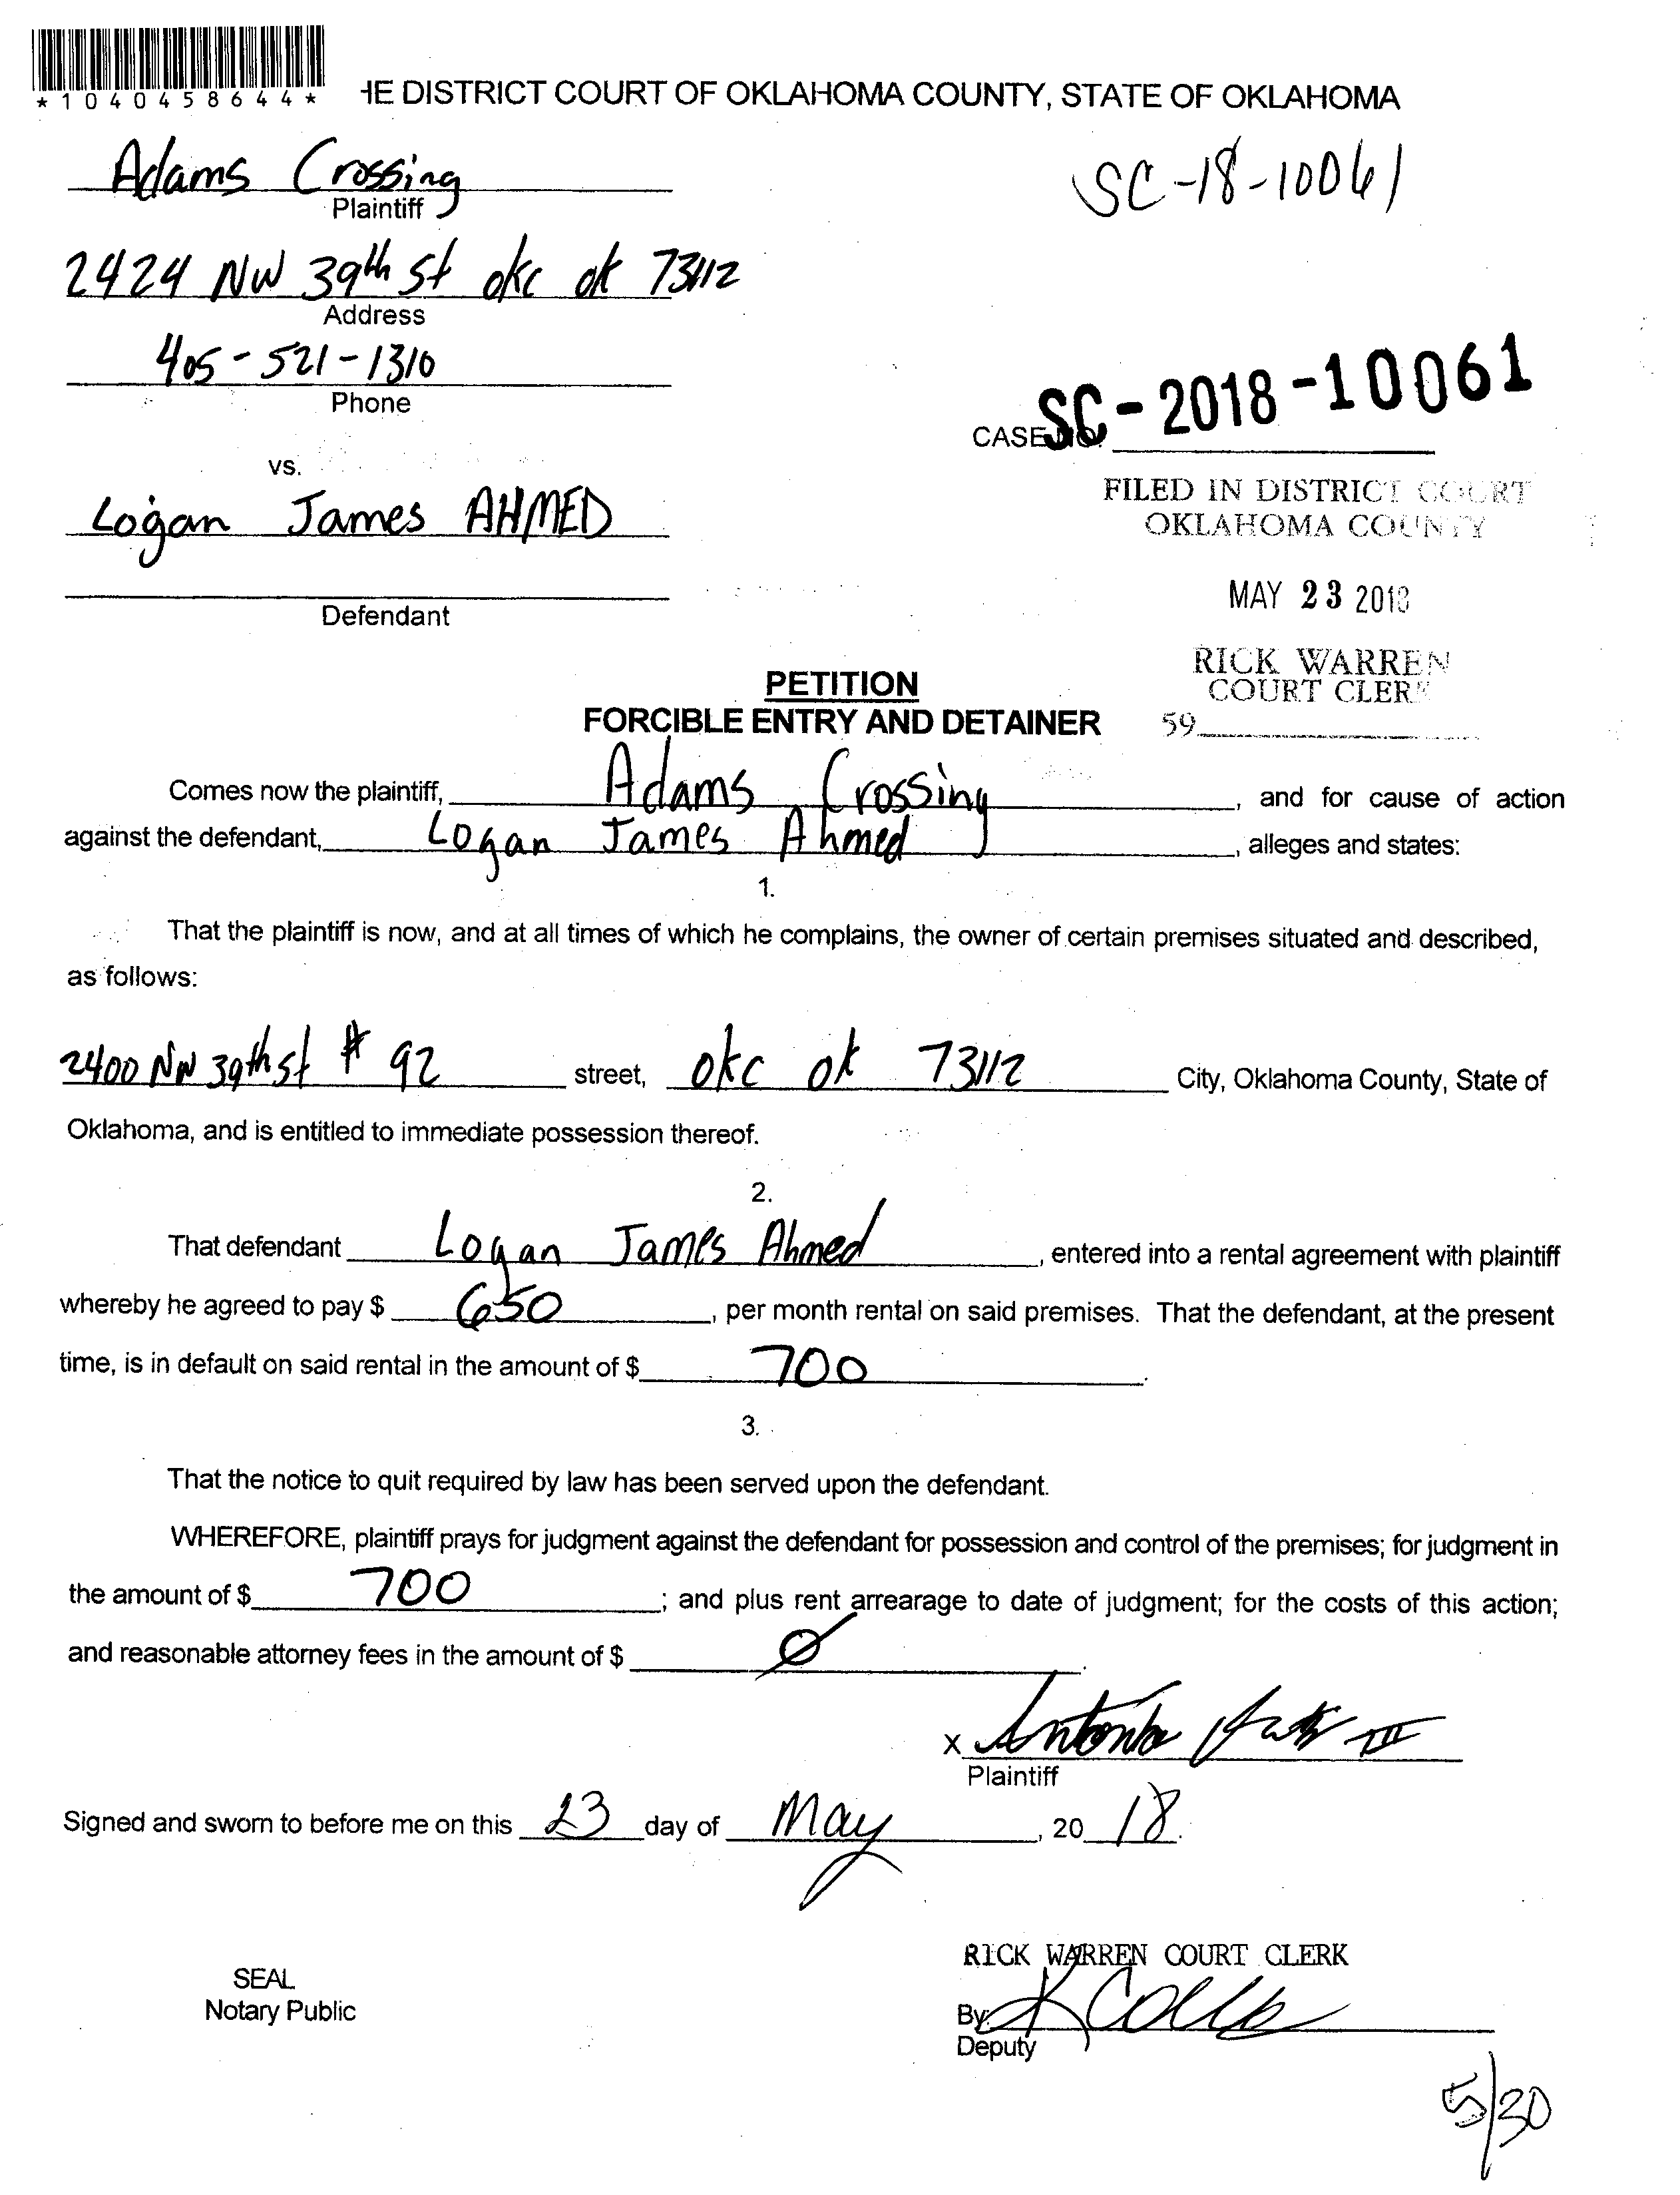 *1040458644*
HE DISTRICT COURT OF OKLAHOMA COUNTY, STATE OF OKLAHOMA
Adams Crossing
Plaintiff
SC-18-10061
2424 NW 39th St okc ok 73112
Address
405-521-1310
Phone
CASE NO. SC-2018-10061
vs.
FILED IN DISTRICT COURT
OKLAHOMA COUNTY
Logan James AHMED
MAY 23 2018
Defendant
RICK WARREN
COURT CLERK
59
PETITION
FORCIBLE ENTRY AND DETAINER
Comes now the plaintiff, Adams Crossing, and for cause of action
against the defendant, Logan James Ahmed, alleges and states:
1.
That the plaintiff is now, and at all times of which he complains, the owner of certain premises situated and described,
as follows:
2400 NW 39th st # 92 street, okc ok 73112 City, Oklahoma County, State of
Oklahoma, and is entitled to immediate possession thereof.
2.
That defendant Logan James Ahmed, entered into a rental agreement with plaintiff
whereby he agreed to pay $ 650, per month rental on said premises. That the defendant, at the present
time, is in default on said rental in the amount of $ 700.
3.
That the notice to quit required by law has been served upon the defendant.
WHEREFORE, plaintiff prays for judgment against the defendant for possession and control of the premises; for judgment in
the amount of $ 700; and plus rent arrearage to date of judgment; for the costs of this action;
and reasonable attorney fees in the amount of $ Ø.
X Antonio III
Plaintiff
Signed and sworn to before me on this 23 day of May, 20 18.
RICK WARREN COURT CLERK
SEAL
Notary Public
By:
Deputy
5/30